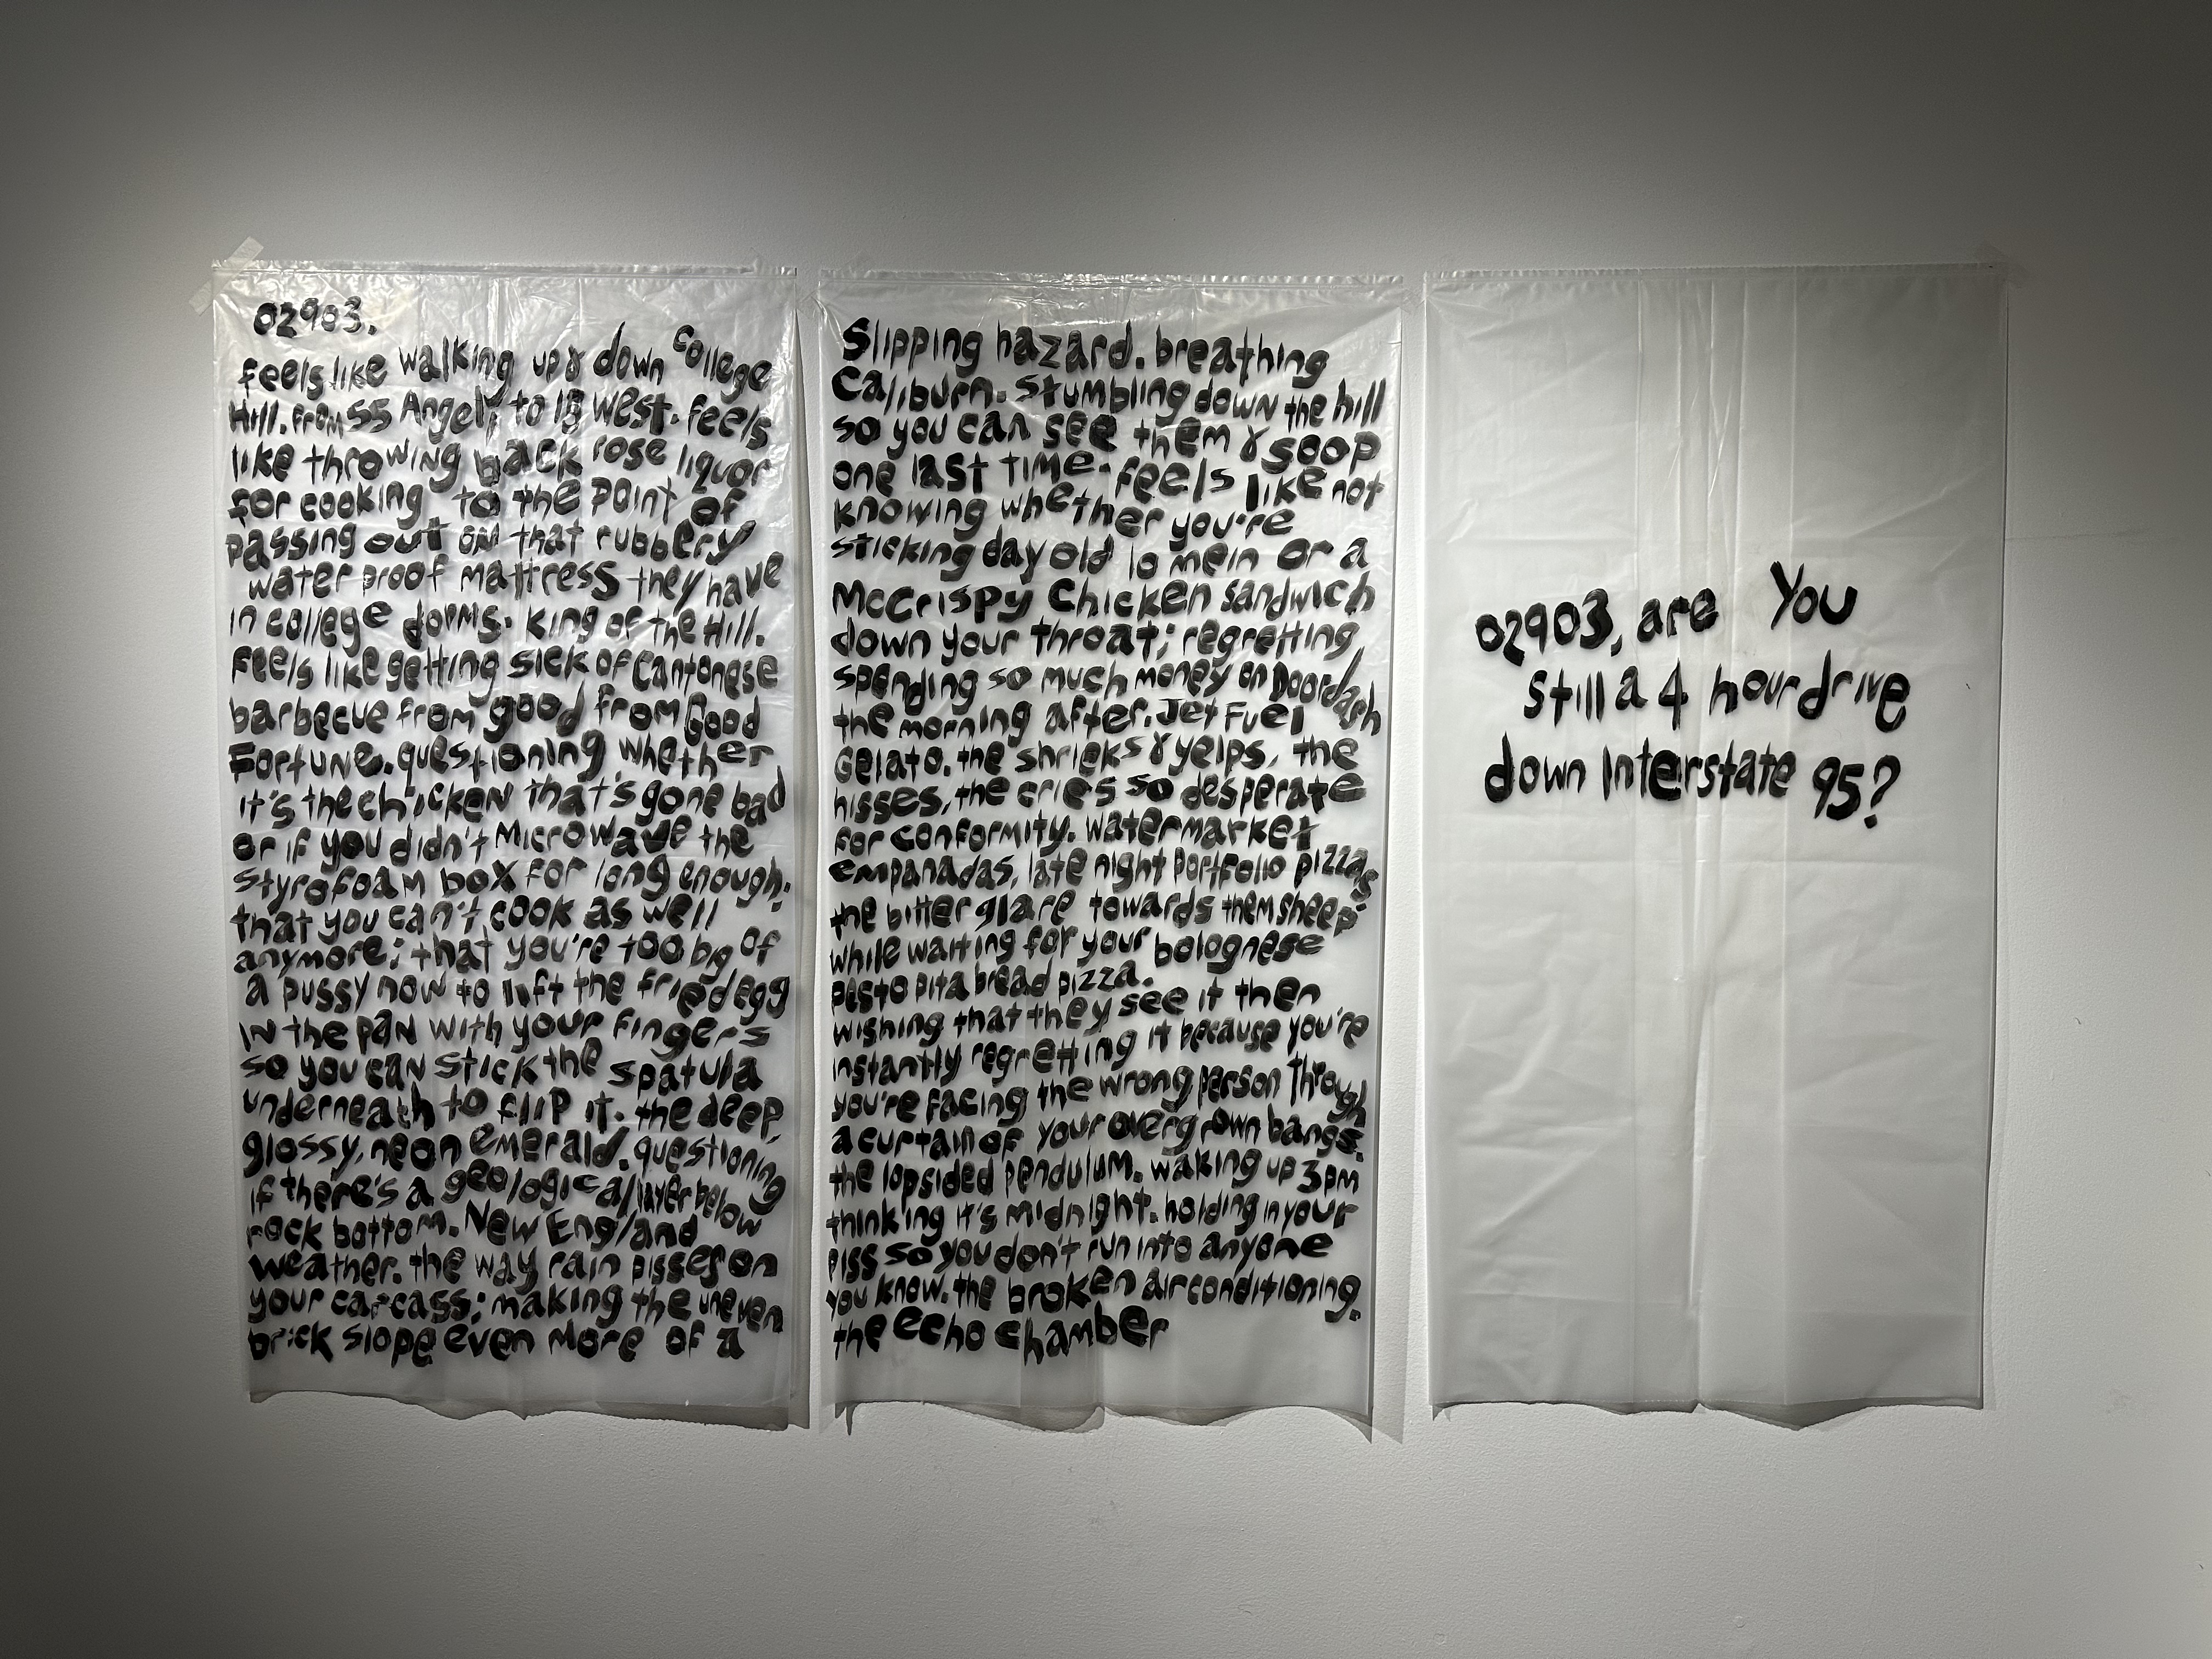 02903.
feels like walking up & down college
Hill. from 55 Angell to 18 west. feels
like throwing back rose liquor
for cooking to the point of
passing out on that rubbery
water proof mattress they have
in college dorms. king of the Hill.
feels like getting sick of Cantonese
barbecue from good from Good
Fortune. questioning whether
it's the chicken that's gone bad
or if you didn't Microwave the
styrofoam box for long enough.
that you can't cook as well
anymore; that you're too big of
a pussy now to lift the fried egg
in the pan with your fingers
so you can stick the spatula
underneath to flip it. the deep,
glossy, neon emerald. questioning
if there's a geological layer below
rock bottom. New England
weather. the way rain pisses on
your carcass; making the uneven
brick slope even more of a
Slipping hazard. breathing
Caliburn. stumbling down the hill
so you can see them & soop
one last time. feels like not
knowing whether you're
sticking day old lo mein or a
McCrispy Chicken sandwich
down your throat; regretting
spending so much money on Doordash
the morning after. Jet Fuel
Gelato. the shrieks & yelps, the
hisses, the cries so desperate
for conformity. watermarket
empanadas, late night portfolio pizzas,
the bitter glare towards them sheep
while waiting for your bolognese
pesto pita bread pizza.
wishing that they see it then
instantly regretting it because you're
you're facing the wrong person through
a curtain of your overgrown bangs.
the lopsided pendulum. waking up 3pm
thinking it's midnight. holding in your
piss so you don't run into anyone
you know. the broken air conditioning.
the echo chamber
02903, are You
still a 4 hour drive
down Interstate 95?